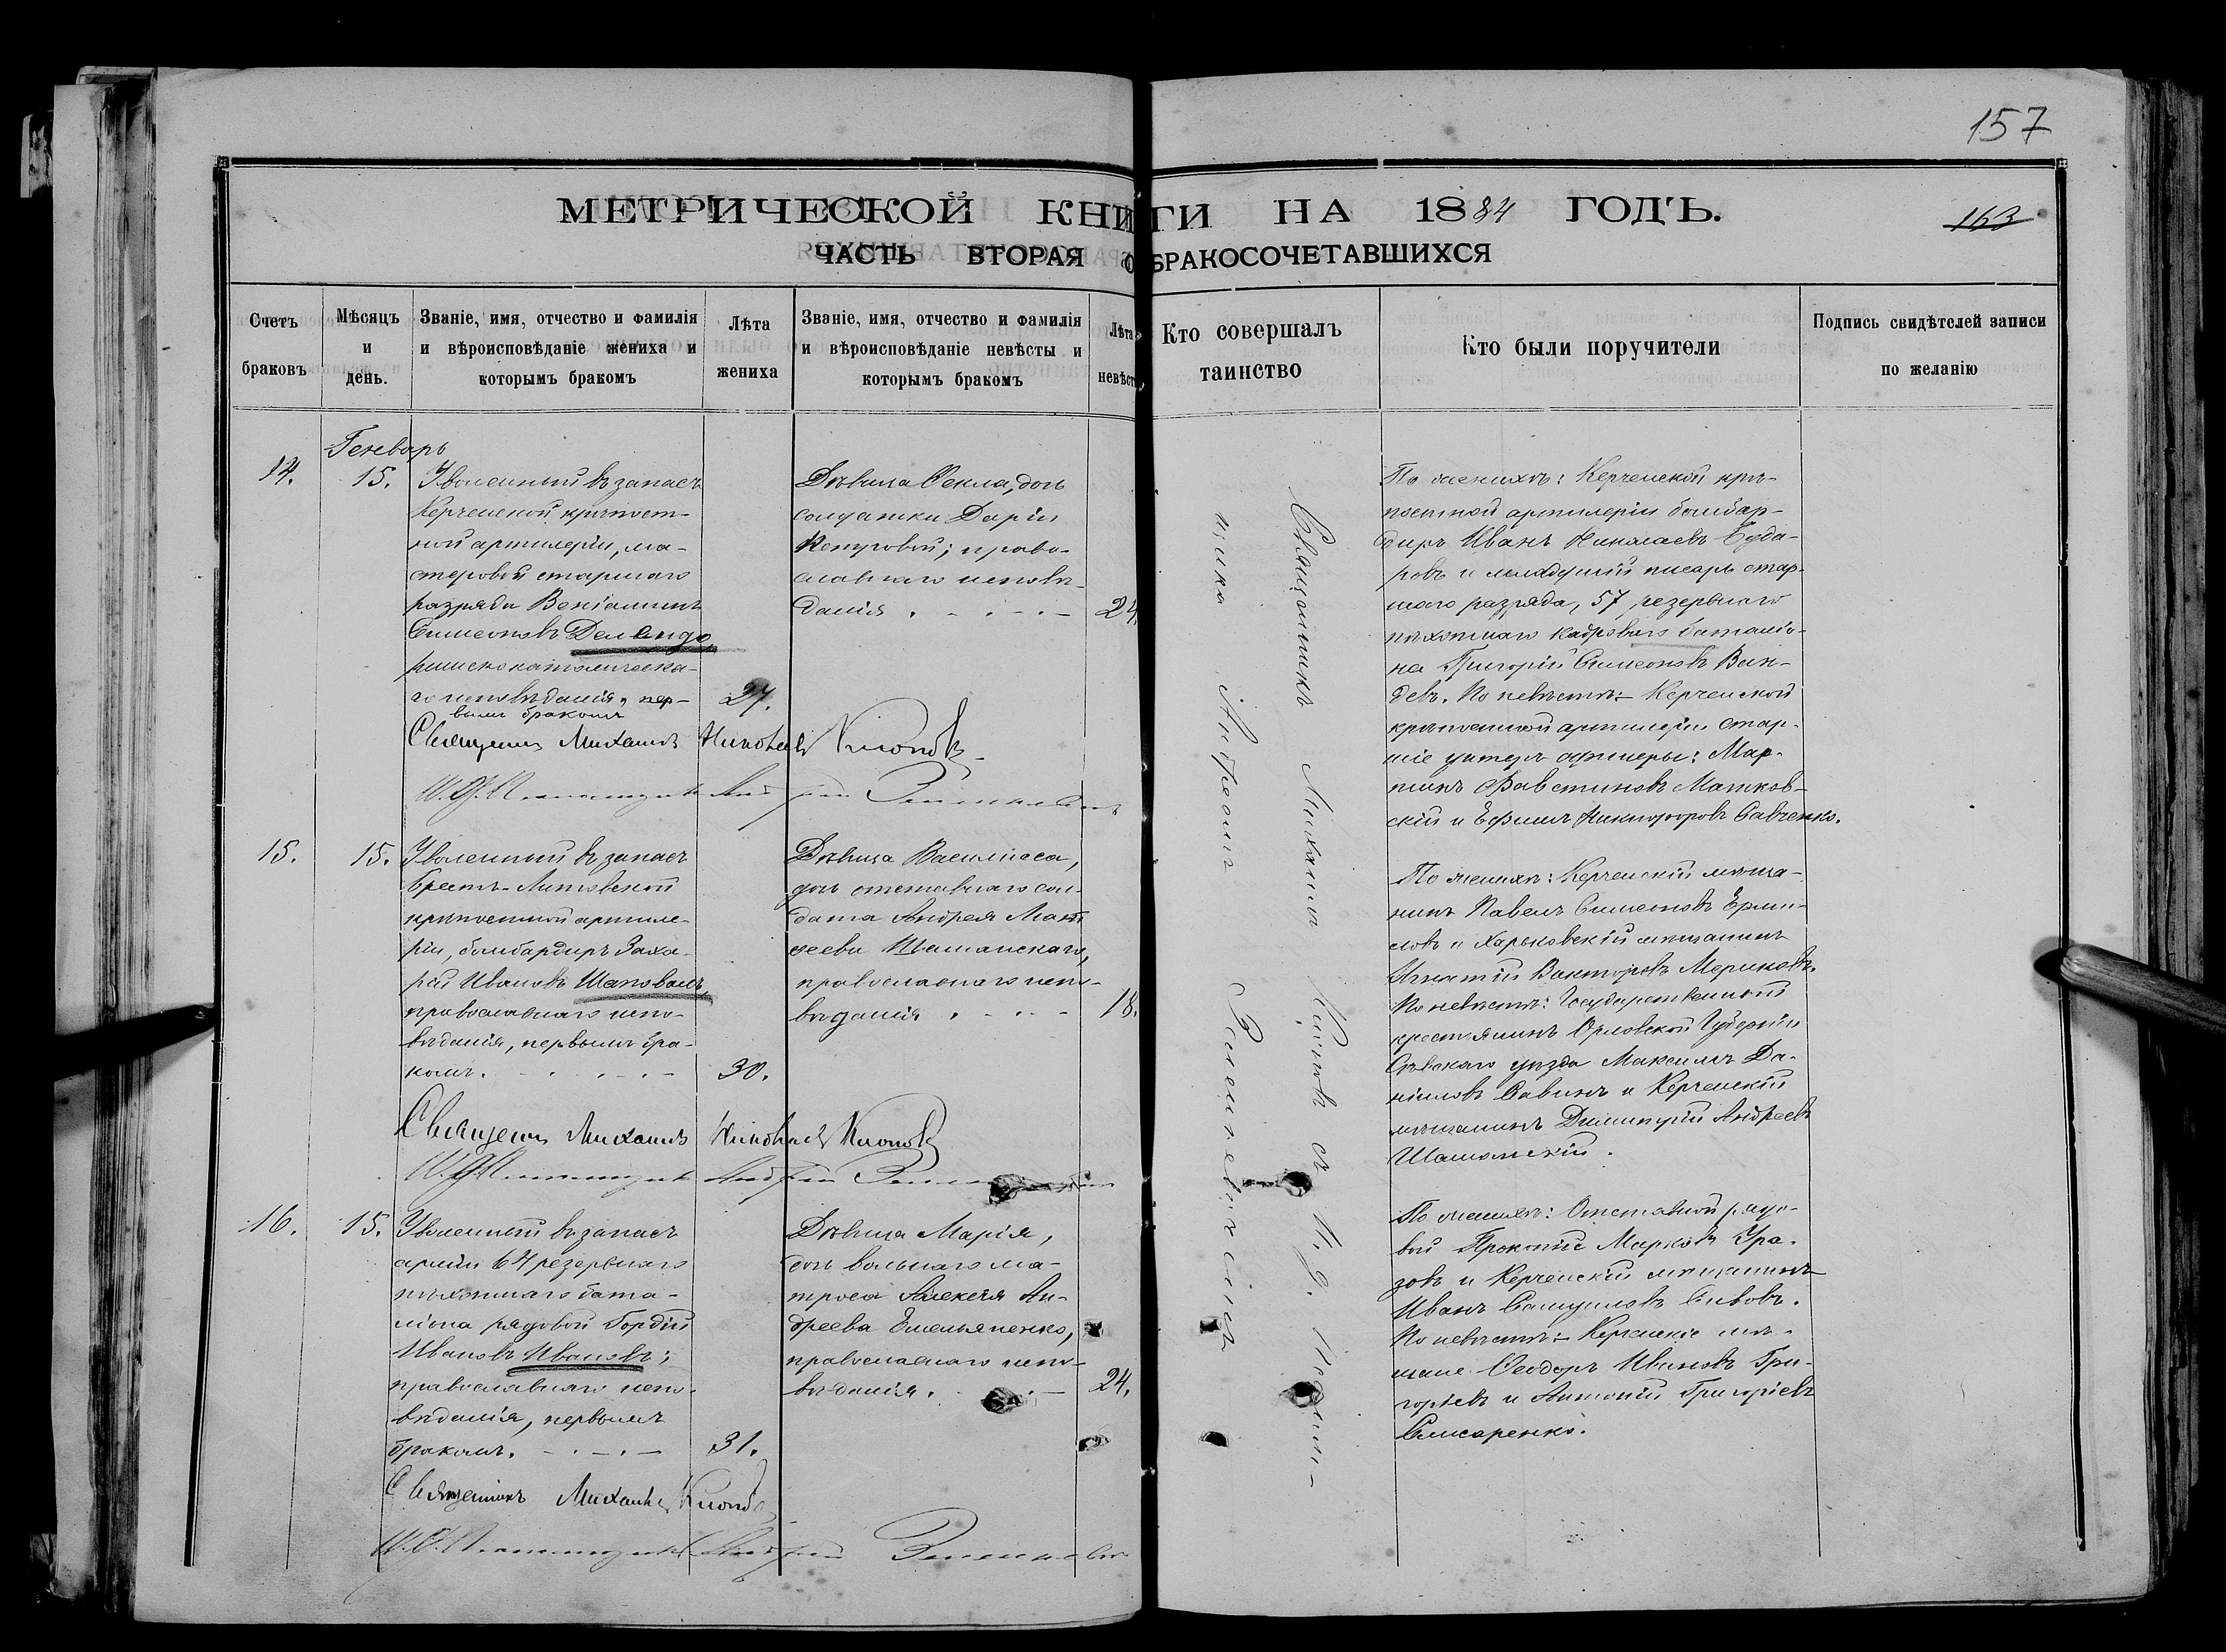 157
МЕТРИЧЕСКОЙ КНИГИ НА 1884 ГОДЪ.
163
ЧАСТЬ ВТОРАЯ О БРАКОСОЧЕТАВШИХСЯ
Счетъ браковъ
Мѣсяцъ и день.
Званіе, имя, отчество и фамилія и вѣроисповѣданіе жениха и которымъ бракомъ
Лѣта жениха
Званіе, имя, отчество и фамилія и вѣроисповѣданіе невѣсты и которымъ бракомъ
Лѣта невѣст
Кто совершалъ таинство
Кто были поручители
Подпись свидѣтелей записи по желанію
Генварь
14.
15.
Уволенный въ запасъ
Керченской крѣпост-
ной артилеріи, ма-
стеровой старшаго
разряда Веніаминъ
Симеоновъ
римскокатолическа-
го исповѣданія, пер-
вымъ бракомъ
27.
Дѣвица Ѳекла, дочь
солдатки Даріи
православнаго исповѣ-
данія
24.
По женихѣ: Керченской крѣ-
постной артилеріи бомбар-
диръ Иванъ Николаевъ Буда-
ровъ и младшій писарь стар-
шаго разряда, 57 резервнаго
пѣхотнаго кадроваго баталіо-
на Григорій Симеоновъ
По невѣстѣ: Керченской
крѣпостной артилеріи стар-
шіе унтеръ офицеры: Мар-
тинъ Фавстиновъ Матков-
скій и Ефимъ Никифоровъ Савченко.
Священникъ Михаилъ Николаевъ Кіоновъ
И. Д. Псаломщика Андрей
15.
15.
Уволенный въ запасъ
Брестъ-Литовской
крѣпостной артиле-
ріи, бомбардиръ Заха-
рій Ивановъ Шаповалъ,
православнаго испо-
вѣданія, первымъ бра-
комъ.
30.
Дѣвица Василисса,
дочь отставнаго сол-
дата Андрея Мат
ѳеева Шаманскаго,
православнаго испо-
вѣданія
18.
По женихѣ: Керченскій мѣща-
нинъ Павелъ Симеоновъ Ерми-
ловъ и Харьковскій мѣщанинъ
Игнатій Викторовъ Мериновъ.
По невѣстѣ: Государственный
крестьянинъ Орловской Губерніи
Сѣвскаго уѣзда Максимъ Да-
ніиловъ Савинъ и Керченскій
мѣщанинъ Димитрій Андреевъ
Шаманскій.
Священникъ Михаилъ Николаевъ Кіоновъ
И. Д. Псаломщика Андрей
16.
15.
Уволенный въ запасъ
арміи 64 резервнаго
пѣхотнаго бата-
ліона рядовой Гордій
Ивановъ Ивановъ;
православнаго испо-
вѣданія, первымъ
бракомъ.
31.
Дѣвица Марія,
дочь вольнаго ма-
троса Алексѣя Ан-
дреева Емельяненко,
православнаго испо-
вѣданія.
24.
По женихѣ: Отставной рядо-
вой Прокопій Марковъ Ура-
зовъ и Керченскій мѣщанинъ
Иванъ Самуиловъ Сивовъ.
По невѣстѣ: Керченскіе мѣ-
щане Ѳеодоръ Ивановъ Гри-
горьевъ и Антоній Григорьевъ
Слисаренко.
Священникъ Михаилъ Кіоновъ
И. Д. Псаломщика Андрей
Священникъ Михаилъ Кіоновъ съ И. д. Псалом-
щика Андреемъ